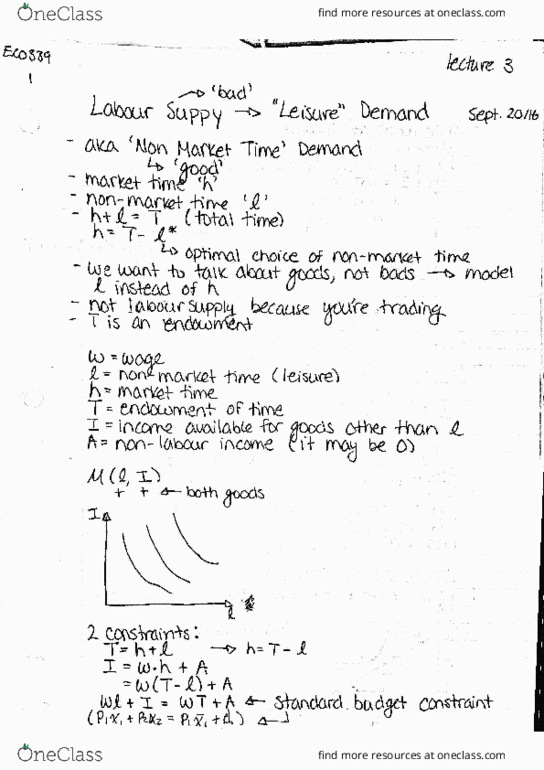 OneClass find more resources at oneclass.com
ECO339 lecture 3
1
↳ 'bad'
Labour Supply → "Leisure" Demand Sept. 20/16
- aka 'Non Market Time' Demand
↳ 'good'
- market time 'h'
- non-market time 'l'
- h + l = T (total time)
h = T - l*
↳ optimal choice of non-market time
- we want to talk about goods, not bads → model
l instead of h
- not labour supply because you're trading
- T is an endowment
W = wage
l = non-market time (leisure)
h = market time
T = endowment of time
I = income available for goods other than l
A = non-labour income (it may be 0)
M(l, I)
+ + ← both goods
I
l
2 constraints:
T = h + l → h = T - l
I = w·h + A
= w(T - l) + A
wl + I = wT + A ← standard budget constraint
OneClass find more resources at oneclass.com